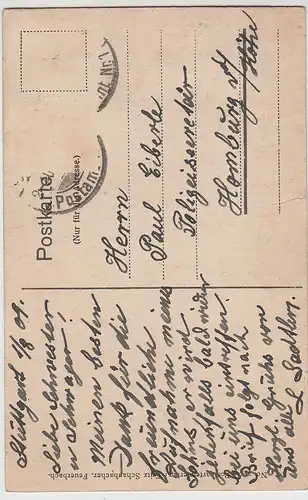 Postkarte
(Nur für die Adresse.)
Herrn
Paul Eiberle
Polizeisekretär
Homburg v/d
Höhe
Stuttgart 1/8 09.
Liebe Schwester
u. Schwager
Meinen besten
Dank für die
freundliche
Aufnahme meines
Sohnes er wird
jedenfalls bald wieder
bei uns eintreffen.
Brief folgt nach
Herzl. Grüße von
uns allen L. Sattler.
Schaabacher, Feuerbach